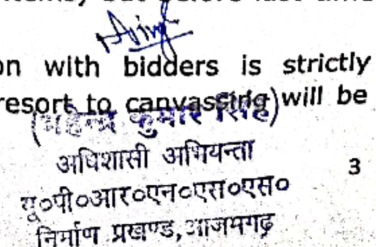 on with bidders is strictly
resort to canvassing will be
(महेन्द्र कुमार सिंह)
अधिशासी अभियन्ता
3
यू०पी०आर०एन०एस०एस०
निर्माण प्रखण्ड, आजमगढ़